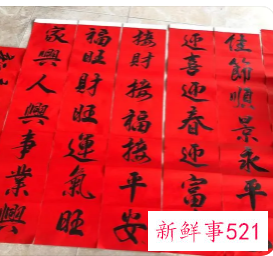 佳節順景永平
迎喜迎春迎富
接財接福接平安
福旺財旺運氣旺
家興人興事業興
新鲜事521